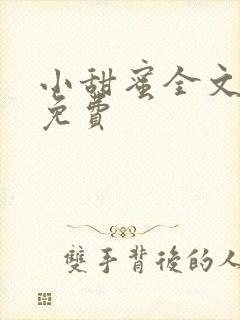 小甜蜜全文
免費
雙手背後的人